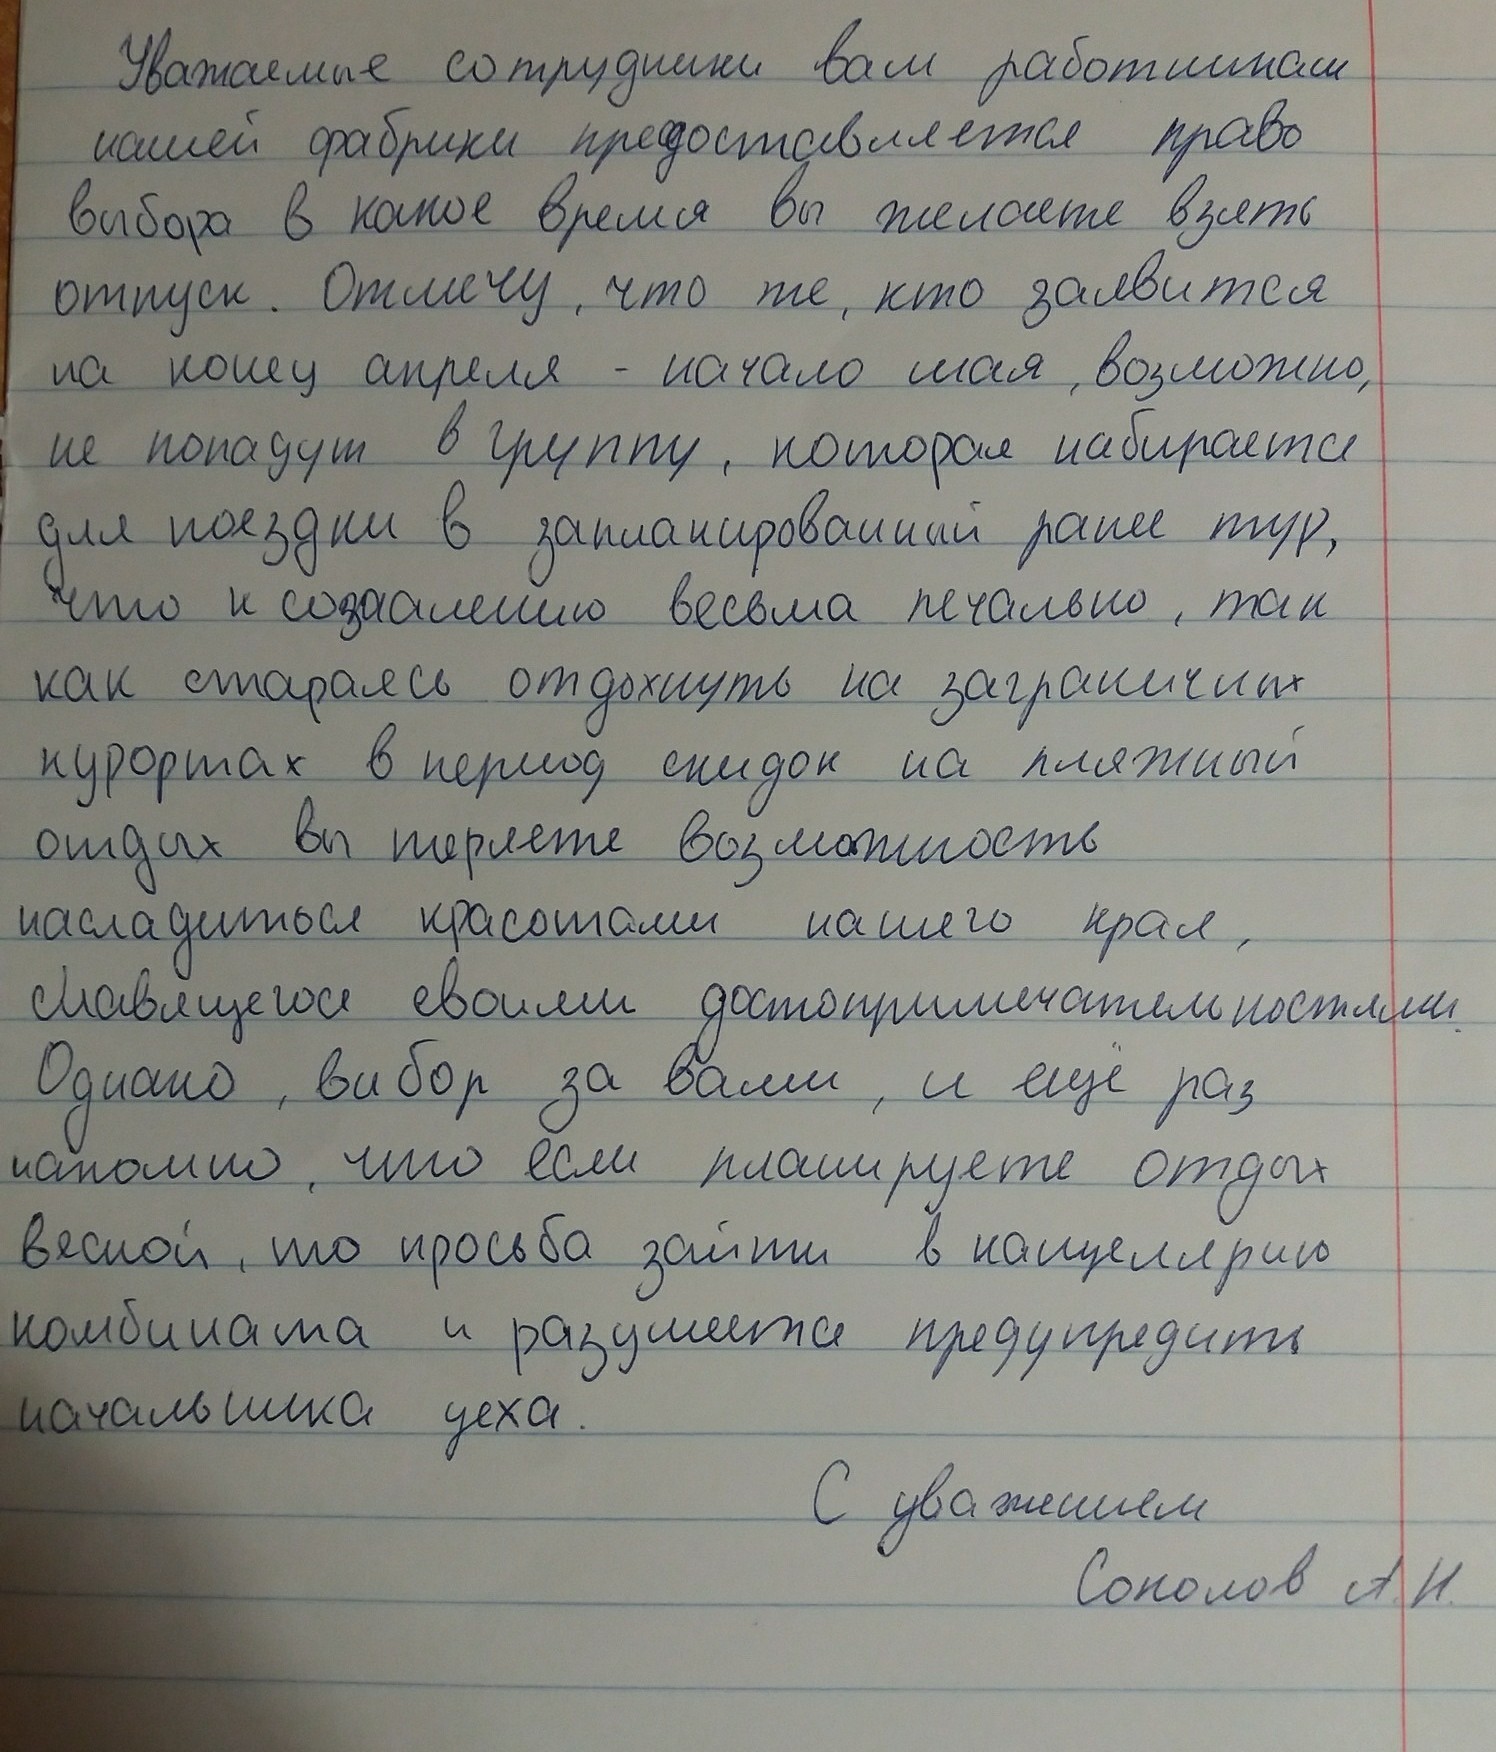 Уважаемые сотрудники вам работникам
нашей фабрики предоставляется право
выбора в какое время вы желаете взять
отпуск. Отмечу, что те, кто заявится
на конец апреля - начало мая, возможно,
не попадут в группу, которая набирается
для поездки в запланированный ранее тур,
что к созжалению весьма печально, так
как стараясь отдохнуть на заграничных
курортах в период скидок на пляжный
отдых вы теряете возможность
насладиться красотами нашего края,
славящегося своими достопримечательностями.
Однако, выбор за вами, и ещё раз
напомню, что если планируете отдых
весной, то просьба зайти в канцелярию
комбината и разумеется предупредить
начальника цеха.
С уважением
Соколов А.Н.